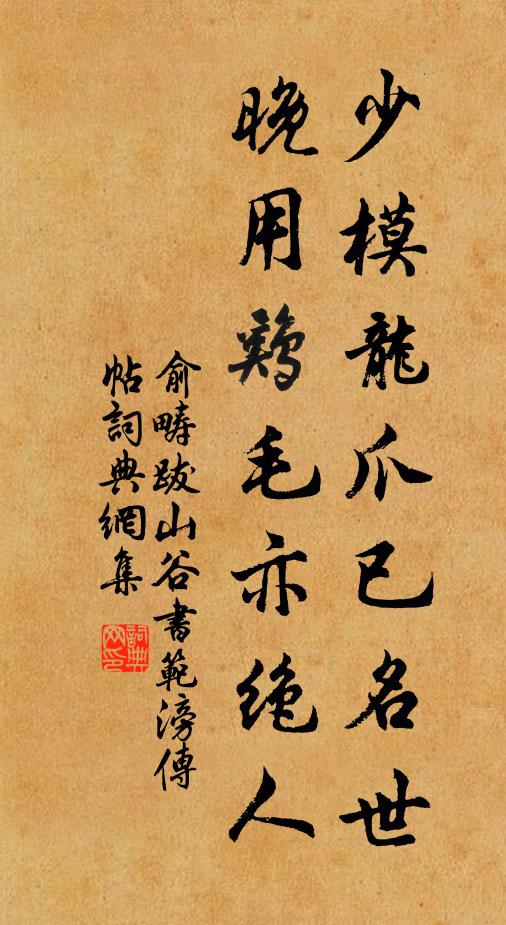 少模龍爪已名世
晚用鷄毛亦絶人
俞疇跋山谷書範滂傳
帖詞典網集
詞典网印